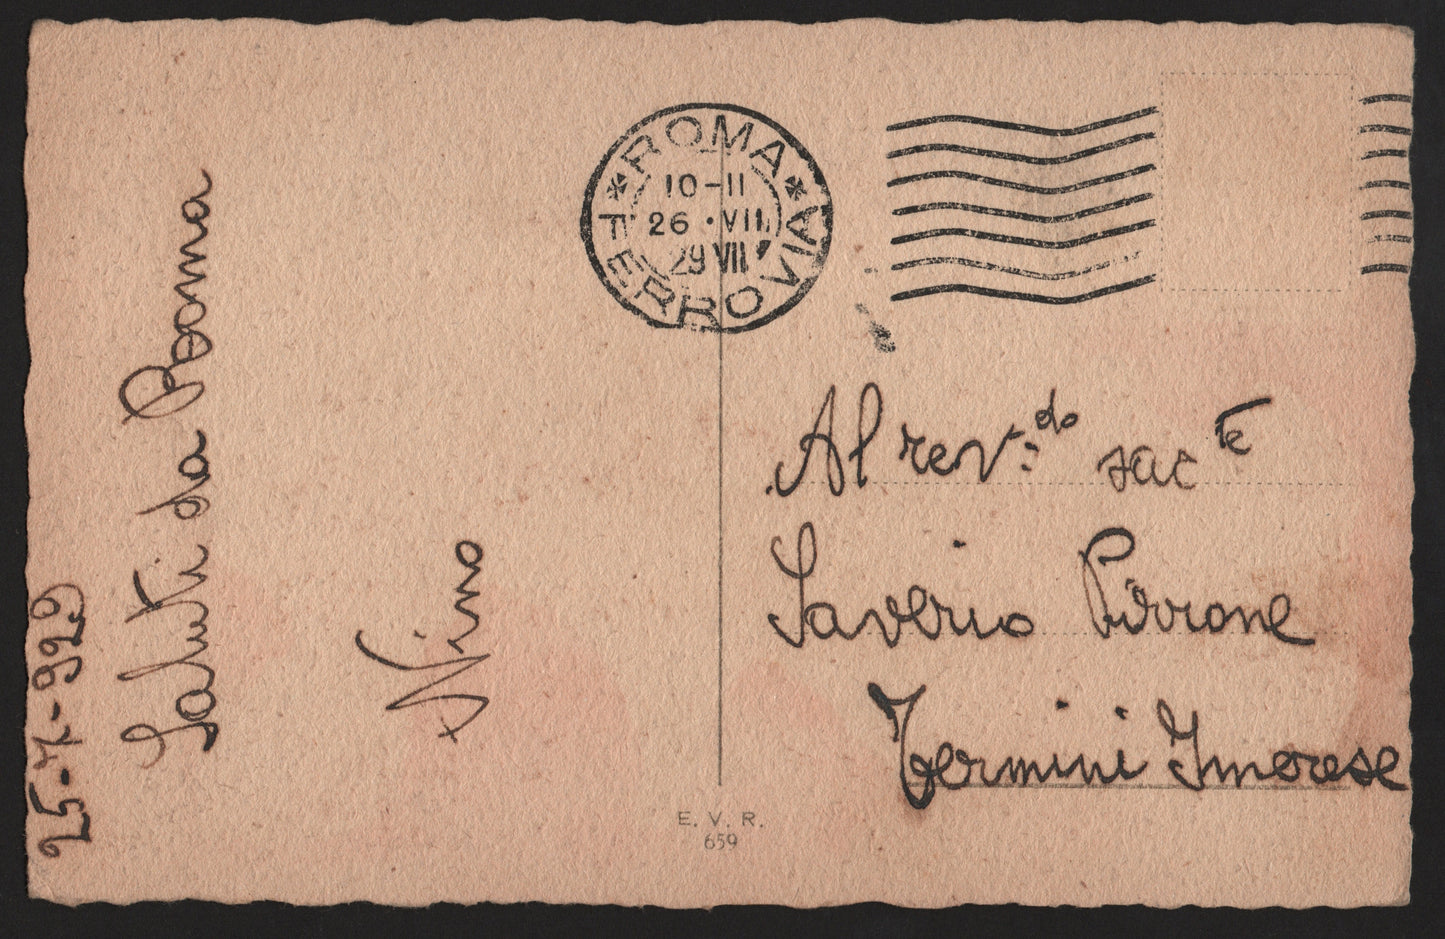 25-7-929
Saluti da Roma
Nino
ROMA
10-11
26 • VII
29 VII
FERROVIA
Al rev:do sacte
Saverio Pirrone
Termini Imerese
E. V. R.
659